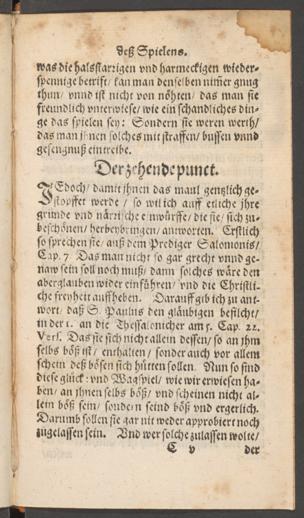 deß Spielens.
was die halsstarrigen vnd hartneckigen wieder-
spennige betrift/ kan man denselben nim̃er gnug
thun/ vnnd ist nicht von nöhten/ das man sie
freundlich vnterwiese/ wie ein schandliches din-
ge das spielen sey: Sondern sie weren werth/
das man jhnen solches mit straffen/ bussen vnnd
gefengnuß eintreibe.
Der zehende punct.
JEdoch/ damit jhnen das maul gentzlich ge-
stopffet werde/ so wil ich auff etliche jhre
gründe vnd närrische einwürffe/ die sie/ sich zu-
beschönen/ herbeybringen/ antworten. Erstlich
so sprechen sie/ auß dem Prediger Salomonis/
Cap. 7. Das man nicht so gar grecht vnnd ge-
naw sein soll noch muß/ dann solches wäre den
aberglauben wider einführen/ vnd die Christli-
che freyheit auffheben. Darauff gib ich zu ant-
wort/ daß S. Paulus den gläubigen befilcht/
in der 1. an die Thessalonicher am 5. Cap. 22.
Vers. Das sie sich nicht allein dessen/ so an jhm
selbs böß ist/ enthalten/ sonder auch vor allem
schein deß bösen sich hütten sollen. Nun so sind
diese glück: vnd Wagspiel/ wie wir erwiesen ha-
ben/ an jhnen selbs böß/ vnd scheinen nicht al-
lein böß sein/ sondern seind böß vnd ergerlich.
Darumb sollen sie gar nit weder approbiert noch
zugelassen sein. Vnd wer solche zulassen wolte/
C v der